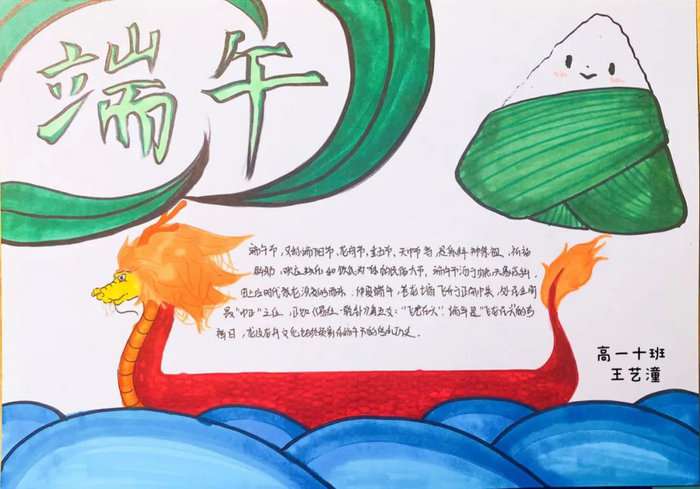 端午
端午节，又称端阳节、龙舟节、重五节、天中节等，是集拜神祭祖、祈福
辟邪、欢庆娱乐和饮食为一体的民俗大节，端午节源于自然天象崇拜，
由上古时代祭龙演变而来。仲夏端午，苍龙七宿飞升于正南中央，处在全年
最"中正"之位，正如《易经·乾卦》第五爻："飞龙在天"。端午是"飞龙在天"的吉
祥日，龙及龙舟文化始终贯穿在端午节的传承历史。
高一十班
王艺潼